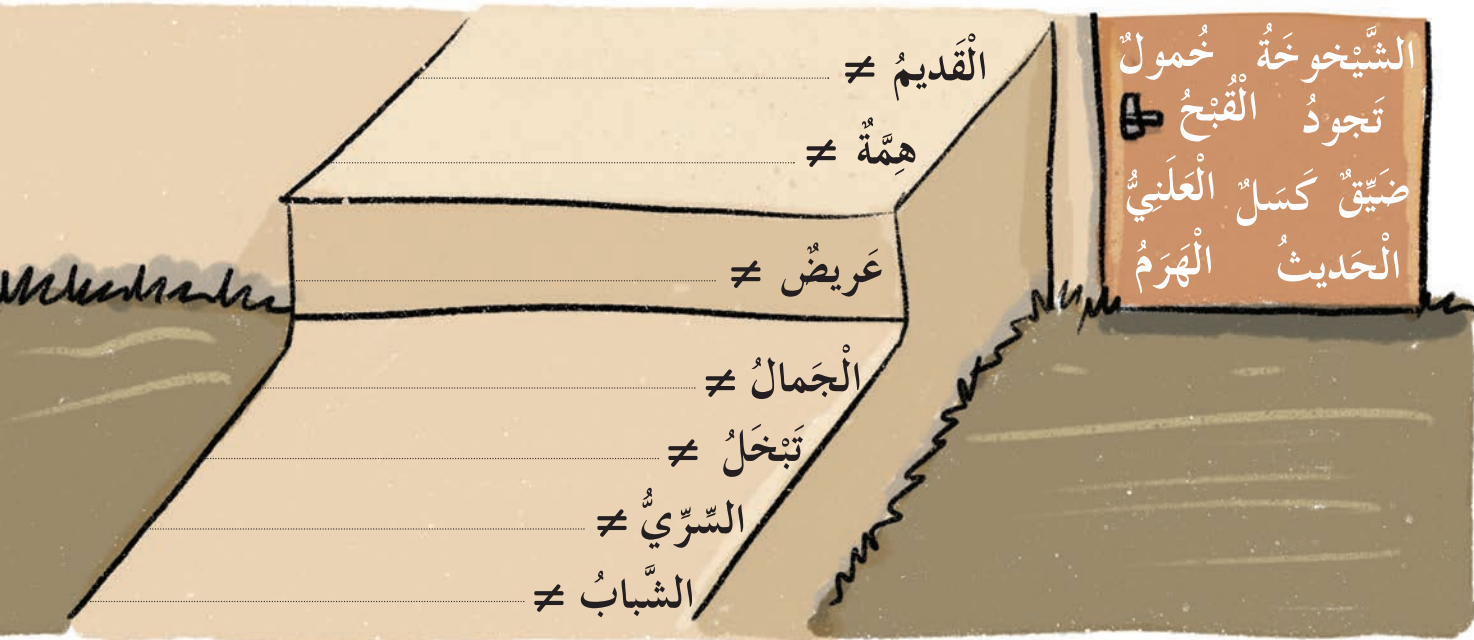 الشَّيْخوخَةُ خُمولٌ
تَجودُ الْقُبْحُ
ضَيِّقٌ كَسَلٌ الْعَلَنِيُّ
الْحَديثُ الْهَرَمُ
الْقَديمُ ≠
هِمَّةٌ ≠
عَريضٌ ≠
الْجَمالُ ≠
تَبْخَلُ ≠
السِّرِّيُّ ≠
الشَّبابُ ≠